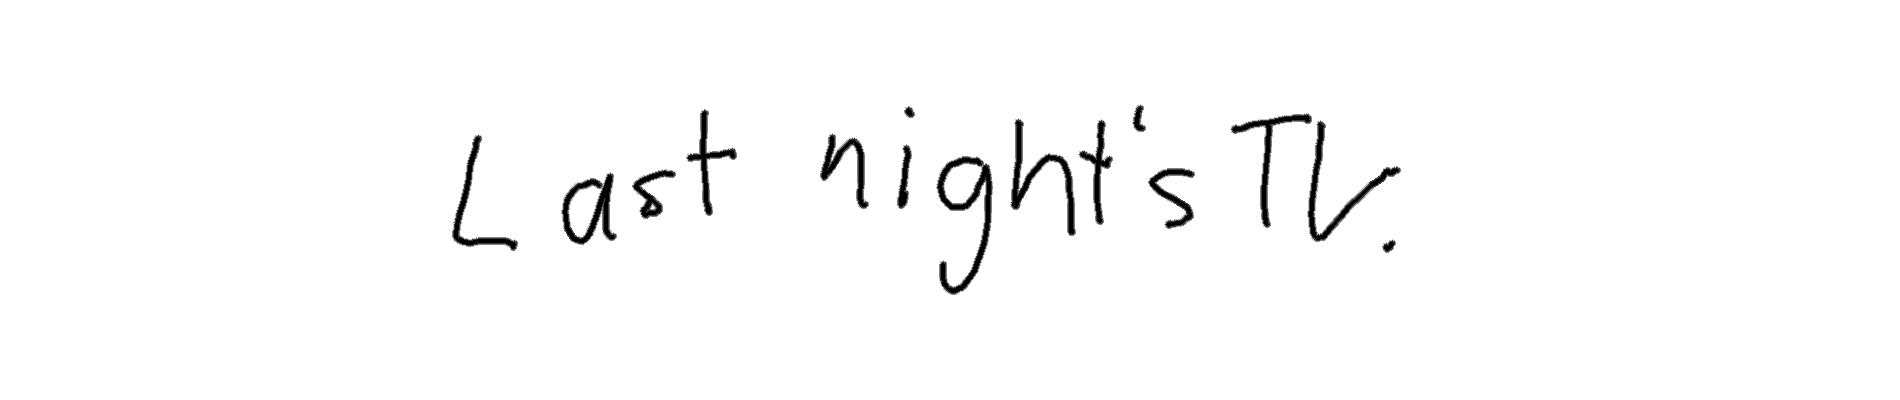 Last night's TV.